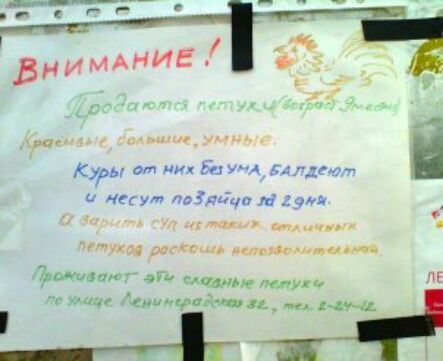 ВНИМАНИЕ!
Продаются петухи (возраст 9 месяцев)
Красивые, большие, умные.
Куры от них без ума, балдеют
и несут по 3 яйца за 2 дня.
А варить суп из таких отличных
петухов роскошь непозволительная.
Проживают эти славные петухи
по улице Ленинградская 32, тел. 2-24-12
ЛЕ